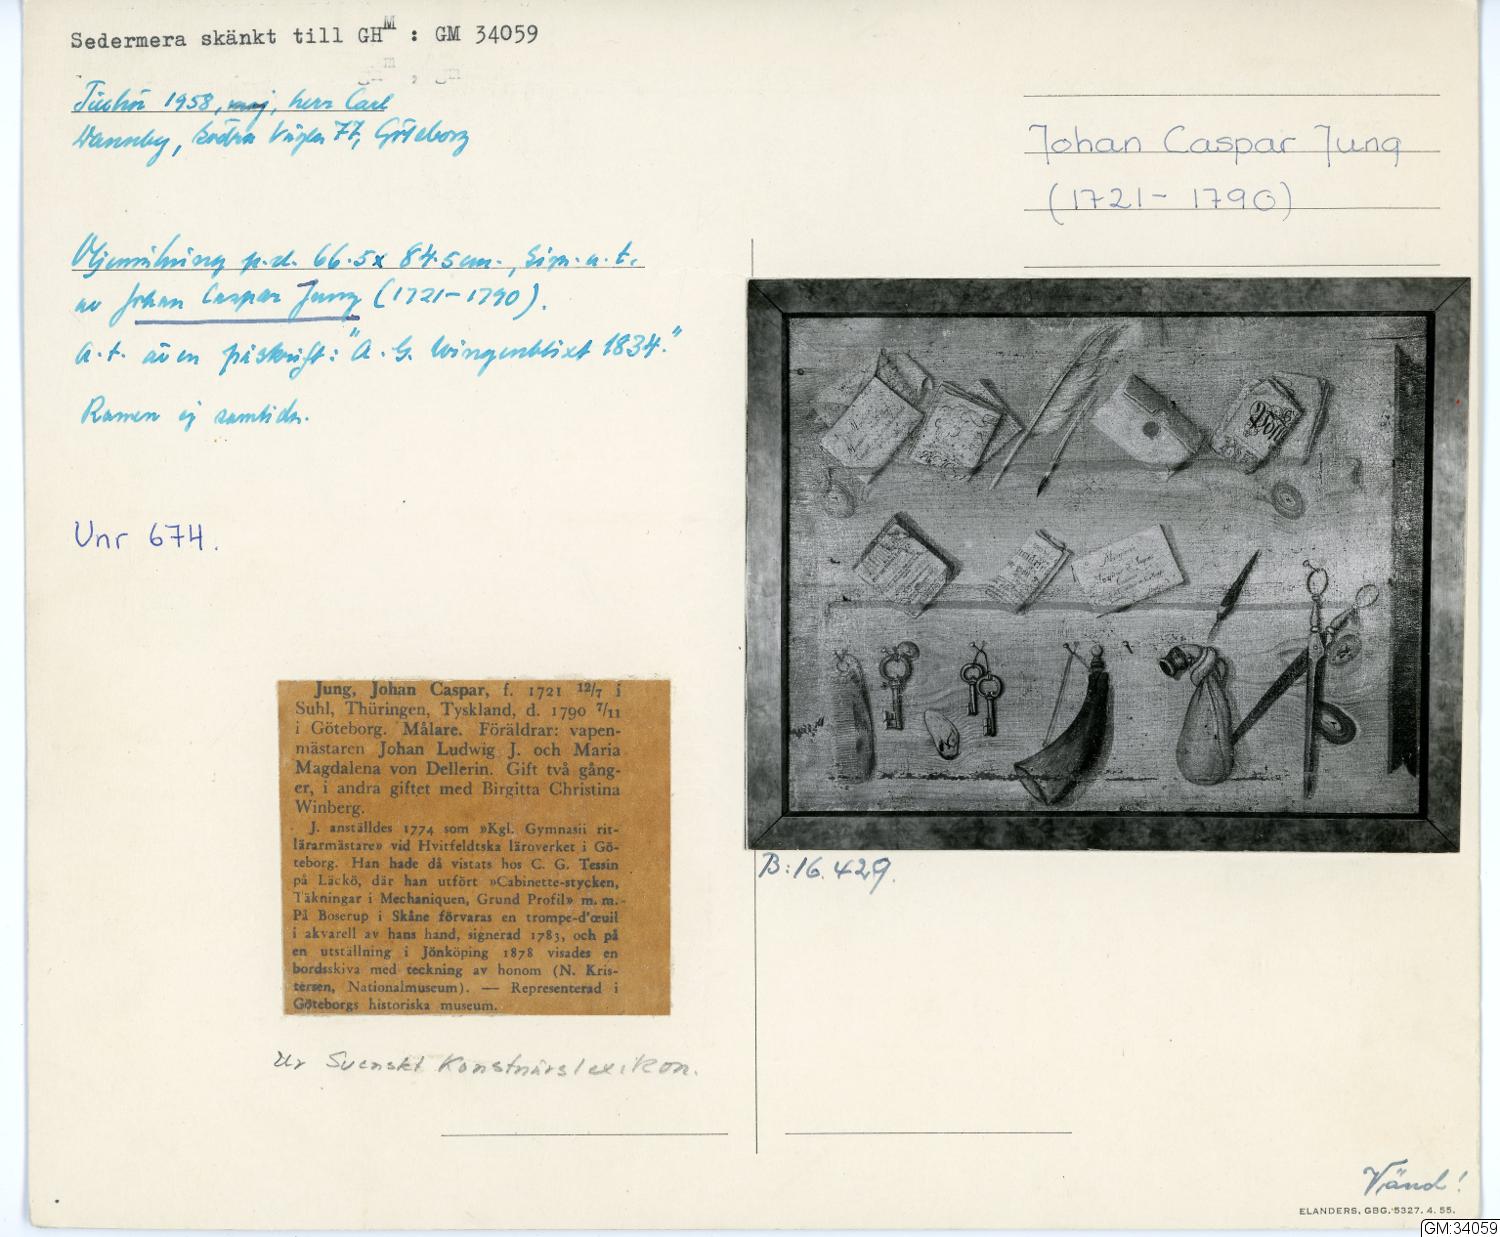 Sedermera skänkt till GHM : GM 34059
Tillhör 1958, maj, herr Carl
Wannby, Södra Vägen 77, Göteborg
Johan Caspar Jung
(1721- 1790)
Oljemålning p.d. 66.5x 84.5 cm., Sign. a.t.
av Johan Caspar Jung (1721-1790).
a.t. även påskrift: "A. G. Wingenblixt 1834."
Ramen ej samtida.
Unr 674.
Jung, Johan Caspar, f. 1721 12/7 i
Suhl, Thüringen, Tyskland, d. 1790 7/11
i Göteborg. Målare. Föräldrar: vapen-
mästaren Johan Ludwig J. och Maria
Magdalena von Dellerin. Gift två gång-
er, i andra giftet med Birgitta Christina
Winberg.
J. anställdes 1774 som »Kgl. Gymnasii rit-
lärarmästare» vid Hvitfeldtska läroverket i Gö-
teborg. Han hade då vistats hos C. G. Tessin
på Läckö, där han utfört »Cabinette-stycken,
Täkningar i Mechaniquen, Grund Profil» m. m.
På Boserup i Skåne förvaras en trompe-d'œuil
i akvarell av hans hand, signerad 1783, och på
en utställning i Jönköping 1878 visades en
bordsskiva med teckning av honom (N. Kris-
tersen, Nationalmuseum). — Representerad i
Göteborgs historiska museum.
Ur Svenskt Konstnärslexikon.
B:16.429.
Vänd!
ELANDERS, GBG. 5327. 4. 55.
GM:34059